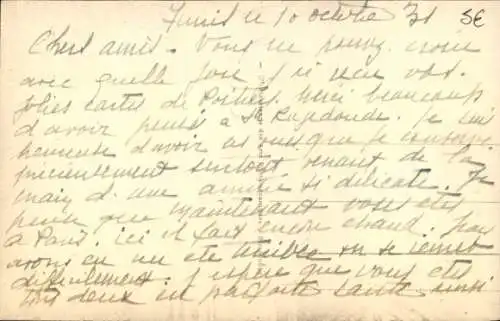 Tunis le 10 octobre 31
5€
Chers amis. Vous ne pouvez croire
avec quelle joie j'ai reçu vos
jolies cartes de Poitiers. Merci beaucoup
d'avoir pensé à Ste Radegonde. Je suis
heureuse d'avoir ces vues que je conserve
précieusement surtout venant de la
main d'une amitié si délicate. Je
pense que maintenant vous êtes
à Paris. ici il fait encore chaud. nous
avons eu un été terrible on se remet
difficilement. J'espère que vous êtes
tous deux en parfaite santé ainsi